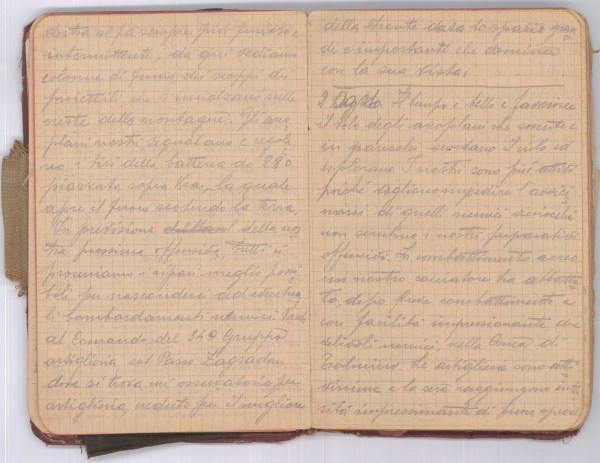 destra si fa sempre più furioso e
intermittente; da qui vediamo
colonne di fumo dei scoppi dei
proiettili che s'innalzano sulle
creste delle montagne. Gli areo
plani nostri segnalano e regola
no i tiri della batteria da 280
piazzata sopra la quale
apre il fuoco scotendo la terra.
In previsione della nos
tra prossima offensiva, tutti ci
procuriamo i ripari meglio possi
bili per nasconderci ad eventua
li bombardamenti nemici.
al Comando del 34º Gruppo
artiglieria sul Passo Zagradan
dove si trova un osservatorio per
artiglieria, veduto per il migliore
della fronte data lo spazio gran
de e importante che domina
con la sua vista.
2 Agosto. Il tempo è bello e favorisce
il volo degli aeroplani che sovente e
in parecchi scortano il sito ed
esplorano. I nostri sono più attivi
perché vogliono impedire l'avvici
narsi di quelli nemici acciocché
non scoprino i nostri preparativi
offensivi. In combattimento aereo
un nostro cacciatore ha abbattu
to, dopo breve combattimento e
con facilità impressionante due
velivoli nemici, nella Conca di
Tolmino. Le artiglierie sono atti
vissime e la sera raggiungono inten
sità impressionante di fuoco